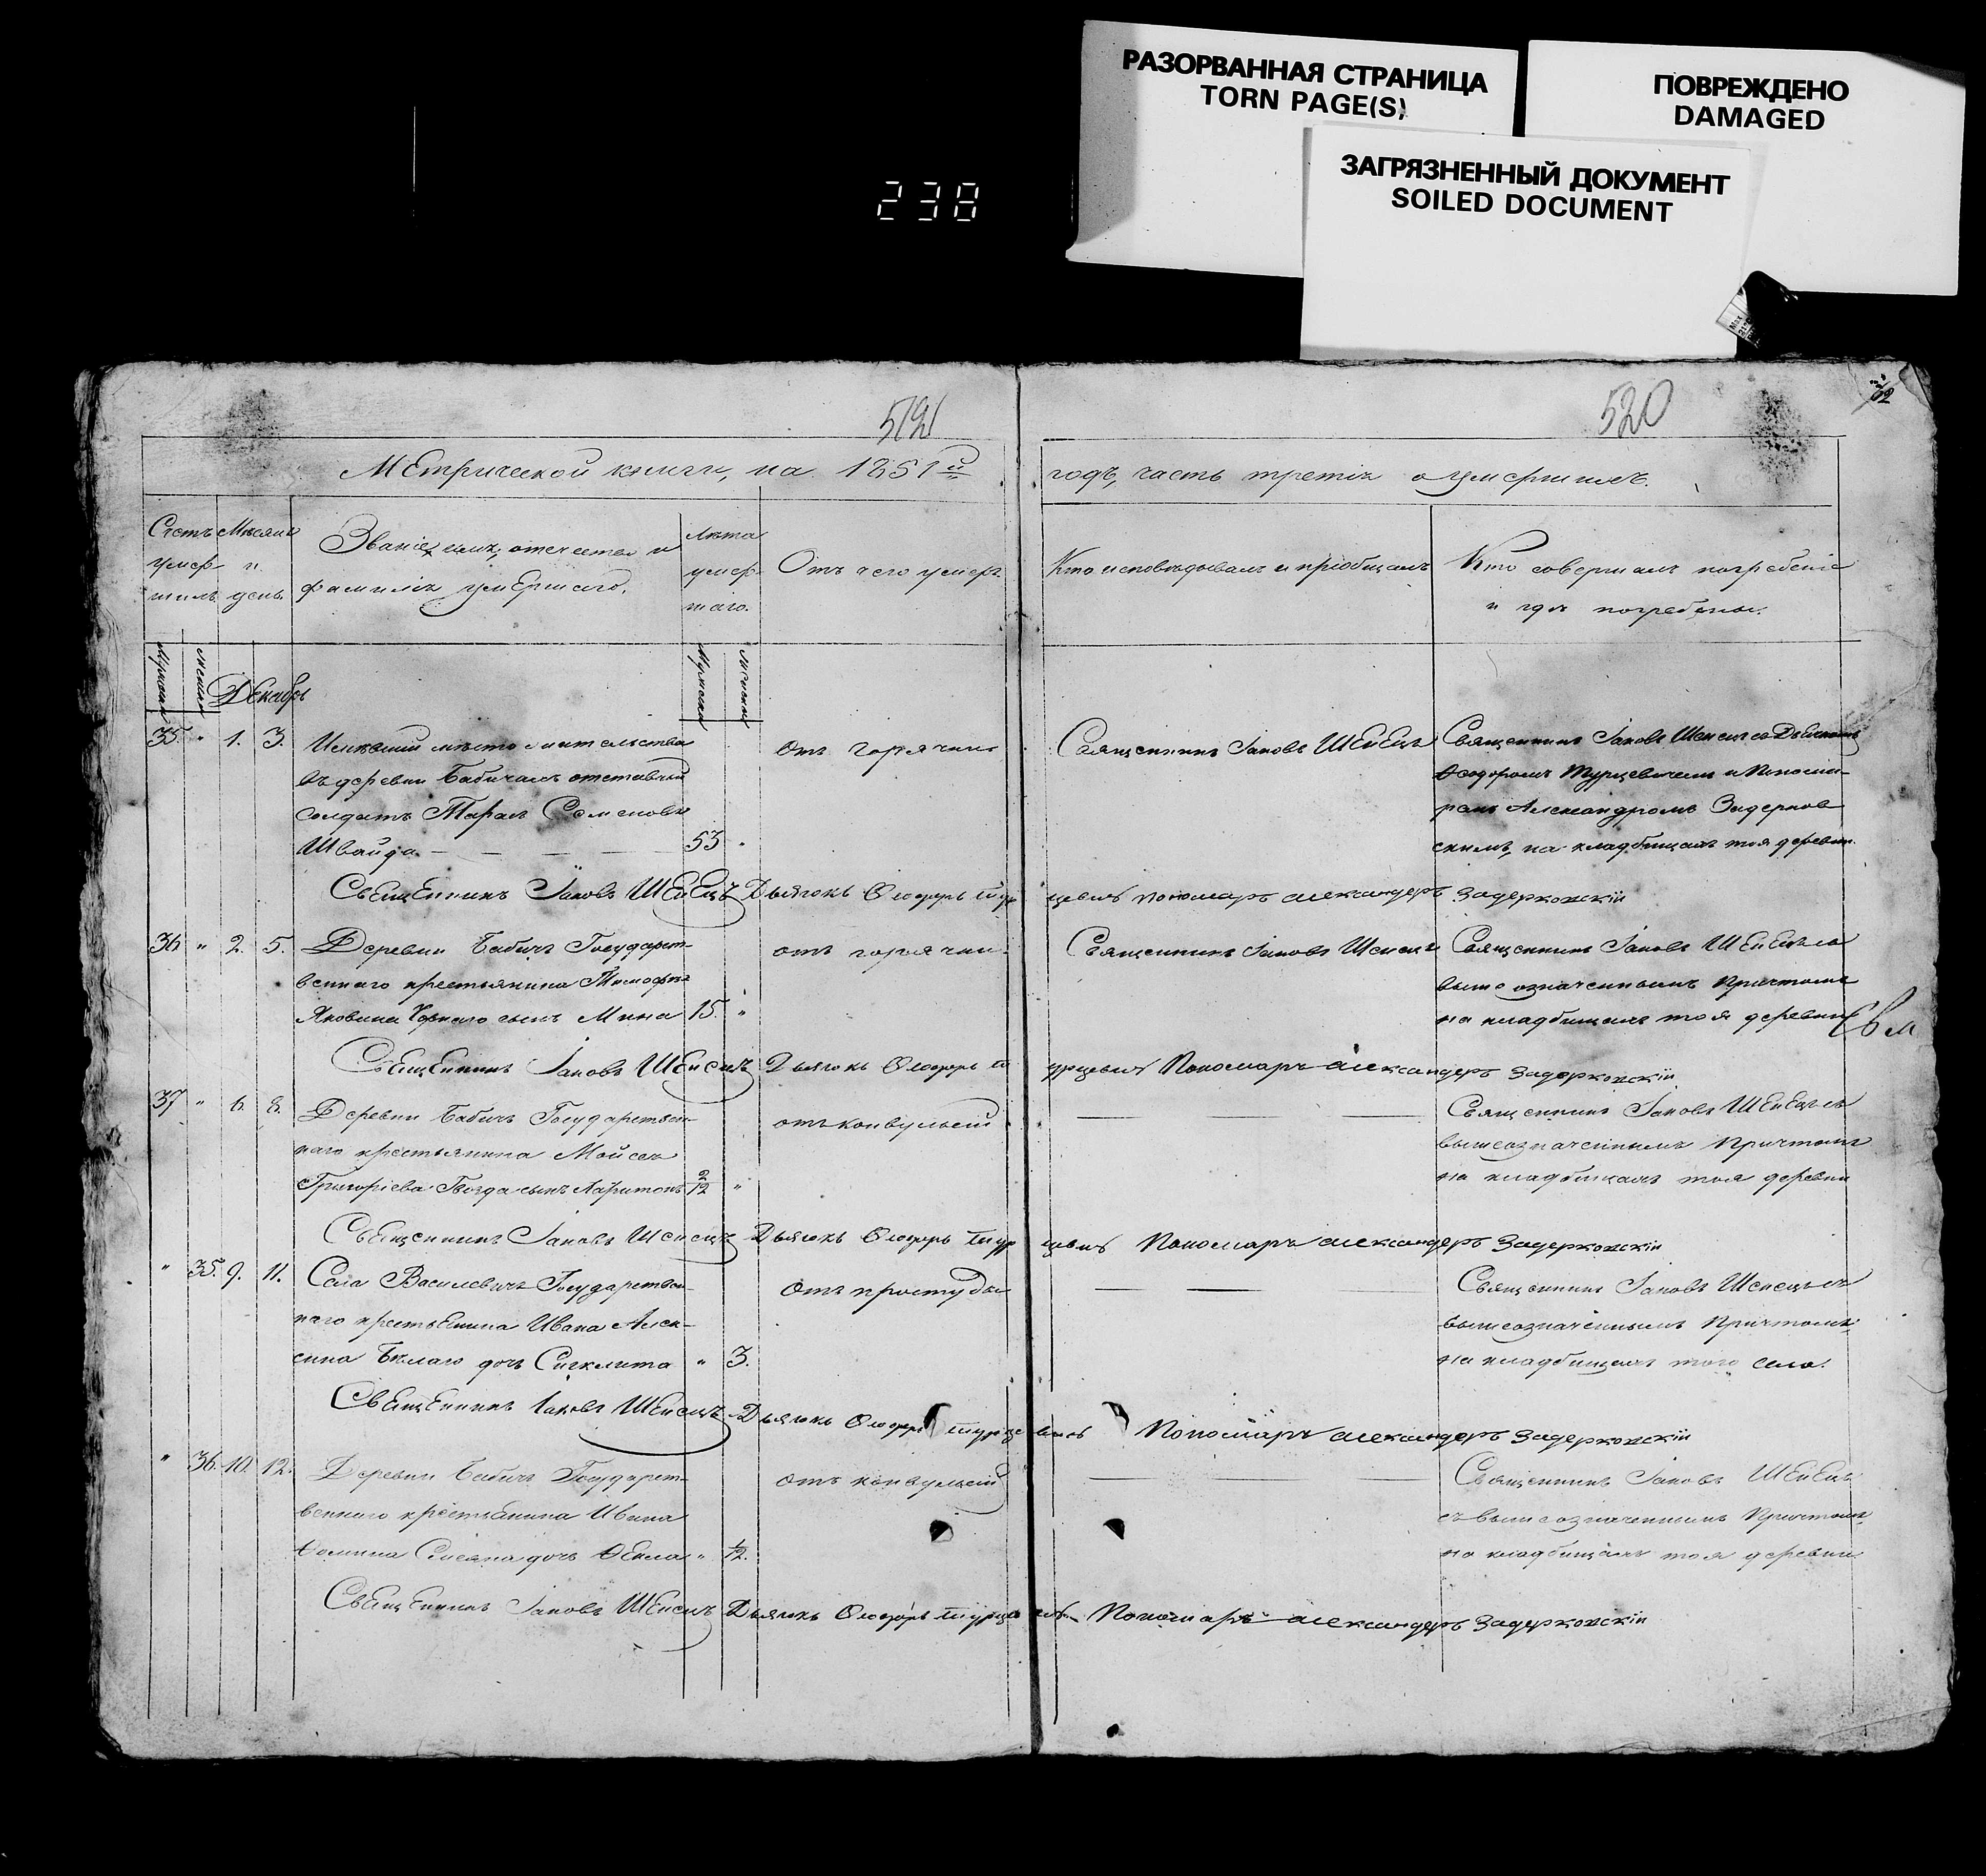 РАЗОРВАННАЯ СТРАНИЦА
TORN PAGE(S)
ПОВРЕЖДЕНО
DAMAGED
ЗАГРЯЗНЕННЫЙ ДОКУМЕНТ
SOILED DOCUMENT
238
519
520
Метрической книги, на 1851й
годъ, часть третія о умершихъ.
Счетъ умер- шихъ
Мѣсяцъ и день.
Званіе, имя, отечество и
фамилія умершаго.
Лѣта умер- шаго.
Отъ чего умеръ.
Кто исповѣдывалъ и пріобщалъ
Кто совершалъ погребеніе
и гдѣ погребены.
Мужеска Женска
Мужеска Женска
Декабрь
35. " 1. 3. Имѣвшій мѣсто жительства
въ деревни Бабичахъ отставный
солдатъ Тарас Семеновъ
Швайда 53 "
Отъ горячки
Священникъ Іаковъ Шеиецъ
Священникъ Іаковъ Шеиецъ съ Дьячкомъ
Ѳеодоромъ Турцевичемъ и Понома-
ремъ Александромъ Задерков-
скимъ, на кладбищахъ тоя деревни.
Священникъ Іаковъ Шеиецъ Дьячокъ Ѳеодоръ Турцевичъ Пономаръ Александеръ Задерковскіи
36 " 2. 5. Деревни Бабичъ Государст-
веннаго крестьянина Тимофѣя
Яковина сынъ Мина 15. "
отъ горячки.
Священникъ Іаковъ Шеиецъ
Священникъ Іаковъ Шеиецъ съ
вышеозначеннымъ Причтомъ
на кладбищахъ тоя деревни
Священникъ Іаковъ Шеиецъ Дьячокъ Ѳеодоръ Турцевичъ Пономаръ Александеръ Задерковскіи
37 " 6. 8. Деревни Бабичъ Государствен-
наго крестьянина Мойсея
Григоріева Гвозда сынъ Харитонъ 2/12 "
отъ конвульсій
Священникъ Іаковъ Шеиецъ съ
вышеозначеннымъ Причтомъ
на кладбищахъ тоя деревни
Священникъ Іаковъ Шеиецъ Дьячокъ Ѳеодоръ Турцевичъ Пономаръ Александеръ Задерковскіи
" 35. 9. 11. Села Василевичъ Государствен-
наго крестьянина Ивана Алек-
сина Бѣлаго дочь Сигклита " 3.
Отъ простуды
Священникъ Іаковъ Шеиецъ съ
вышеозначеннымъ Причтомъ
на кладбищахъ того села.
Священникъ Іаковъ Шеиецъ Дьячокъ Ѳеодоръ Турцевичъ Пономаръ Александеръ Задерковскіи
" 36. 10. 12. Деревни Бабичъ Государст-
веннаго крестьянина Ивана
Ѳомина дочь Ѳекла " 1/12.
отъ конвульсій
Священникъ Іаковъ Шеиецъ
съ вышеозначеннымъ Причтомъ
на кладбищахъ тоя деревни
Священникъ Іаковъ Шеиецъ Дьячокъ Ѳеодоръ Турцевичъ Пономаръ Александеръ Задерковскіи